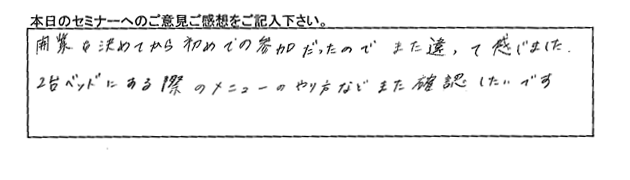 本日のセミナーへのご意見ご感想をご記入下さい。
開業を決めてから初めての参加だったので また違って感じました.
2台ベッドにある際のメニューのやり方などまた確認したいです